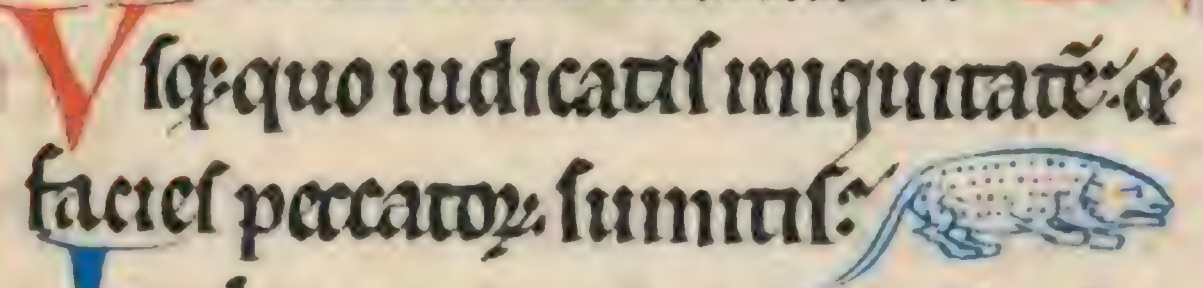 Uſq; quo iudicatiſ iniquitatē: &
facieſ peccatoꝝ ſumitiſ: